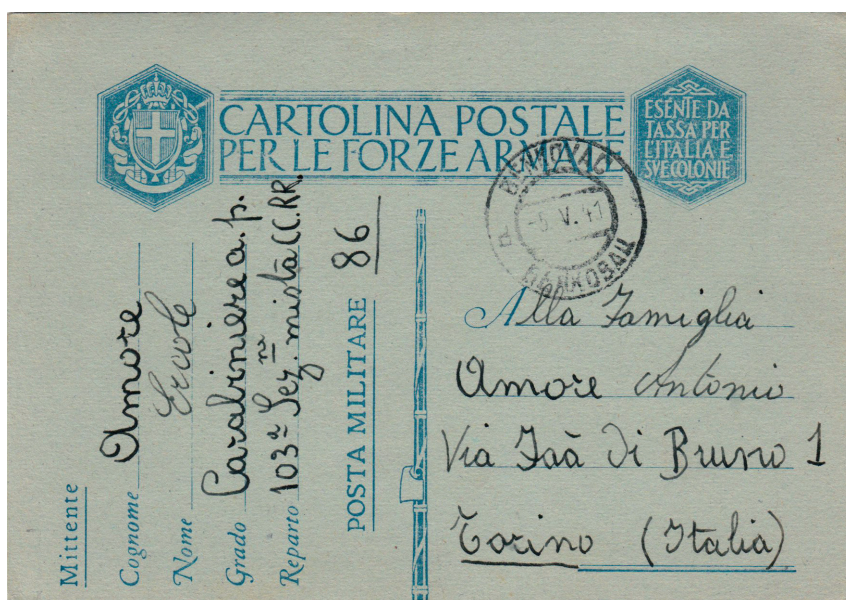 CARTOLINA POSTALE
PER LE FORZE ARMATE
ESENTE DA
TASSA PER
L'ITALIA E
SVE COLONIE
BENKOVAC
-6 V. 41
БЕНКОВАЦ
Mittente
Cognome Amore
Nome Ercole
Grado Carabiniere a. p.
Reparto 103ª Sez.ne mista CC.RR.
POSTA MILITARE 86
Alla Famiglia
Amore Antonio
Via Faà Di Bruno 1
Torino (Italia)